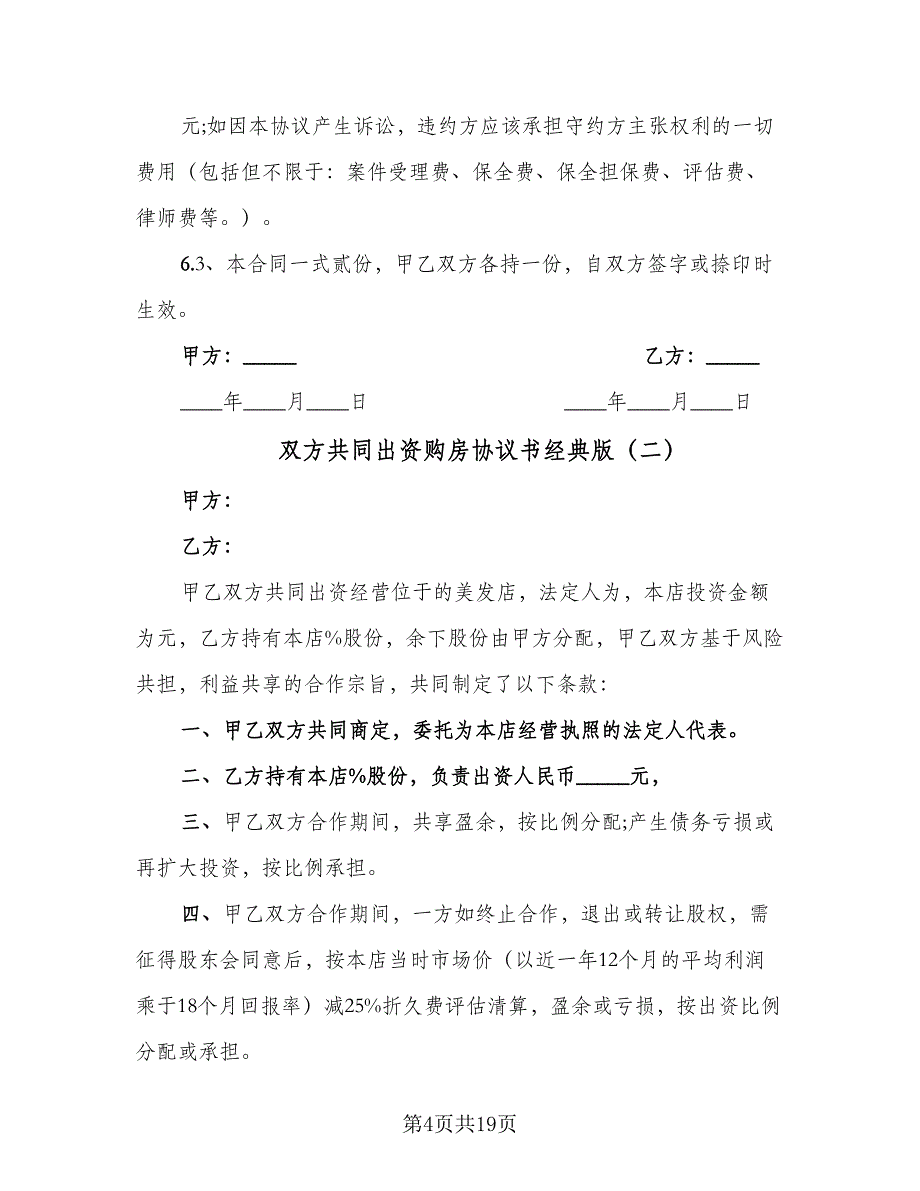 元;如因本协议产生诉讼，违约方应该承担守约方主张权利的一切
费用（包括但不限于：案件受理费、保全费、保全担保费、评估费、
律师费等。）。
6.3、本合同一式贰份，甲乙双方各持一份，自双方签字或捺印时
生效。
甲方：_____ 乙方：_____
____年____月____日 ____年____月____日
双方共同出资购房协议书经典版（二）
甲方：
乙方：
甲乙双方共同出资经营位于的美发店，法定人为，本店投资金额
为元，乙方持有本店%股份，余下股份由甲方分配，甲乙双方基于风险
共担，利益共享的合作宗旨，共同制定了以下条款：
一、甲乙双方共同商定，委托为本店经营执照的法定人代表。
二、乙方持有本店%股份，负责出资人民币_____元，
三、甲乙双方合作期间，共享盈余，按比例分配;产生债务亏损或
再扩大投资，按比例承担。
四、甲乙双方合作期间，一方如终止合作，退出或转让股权，需
征得股东会同意后，按本店当时市场价（以近一年12个月的平均利润
乘于18个月回报率）减25%折久费评估清算，盈余或亏损，按出资比例
分配或承担。
第4页共19页